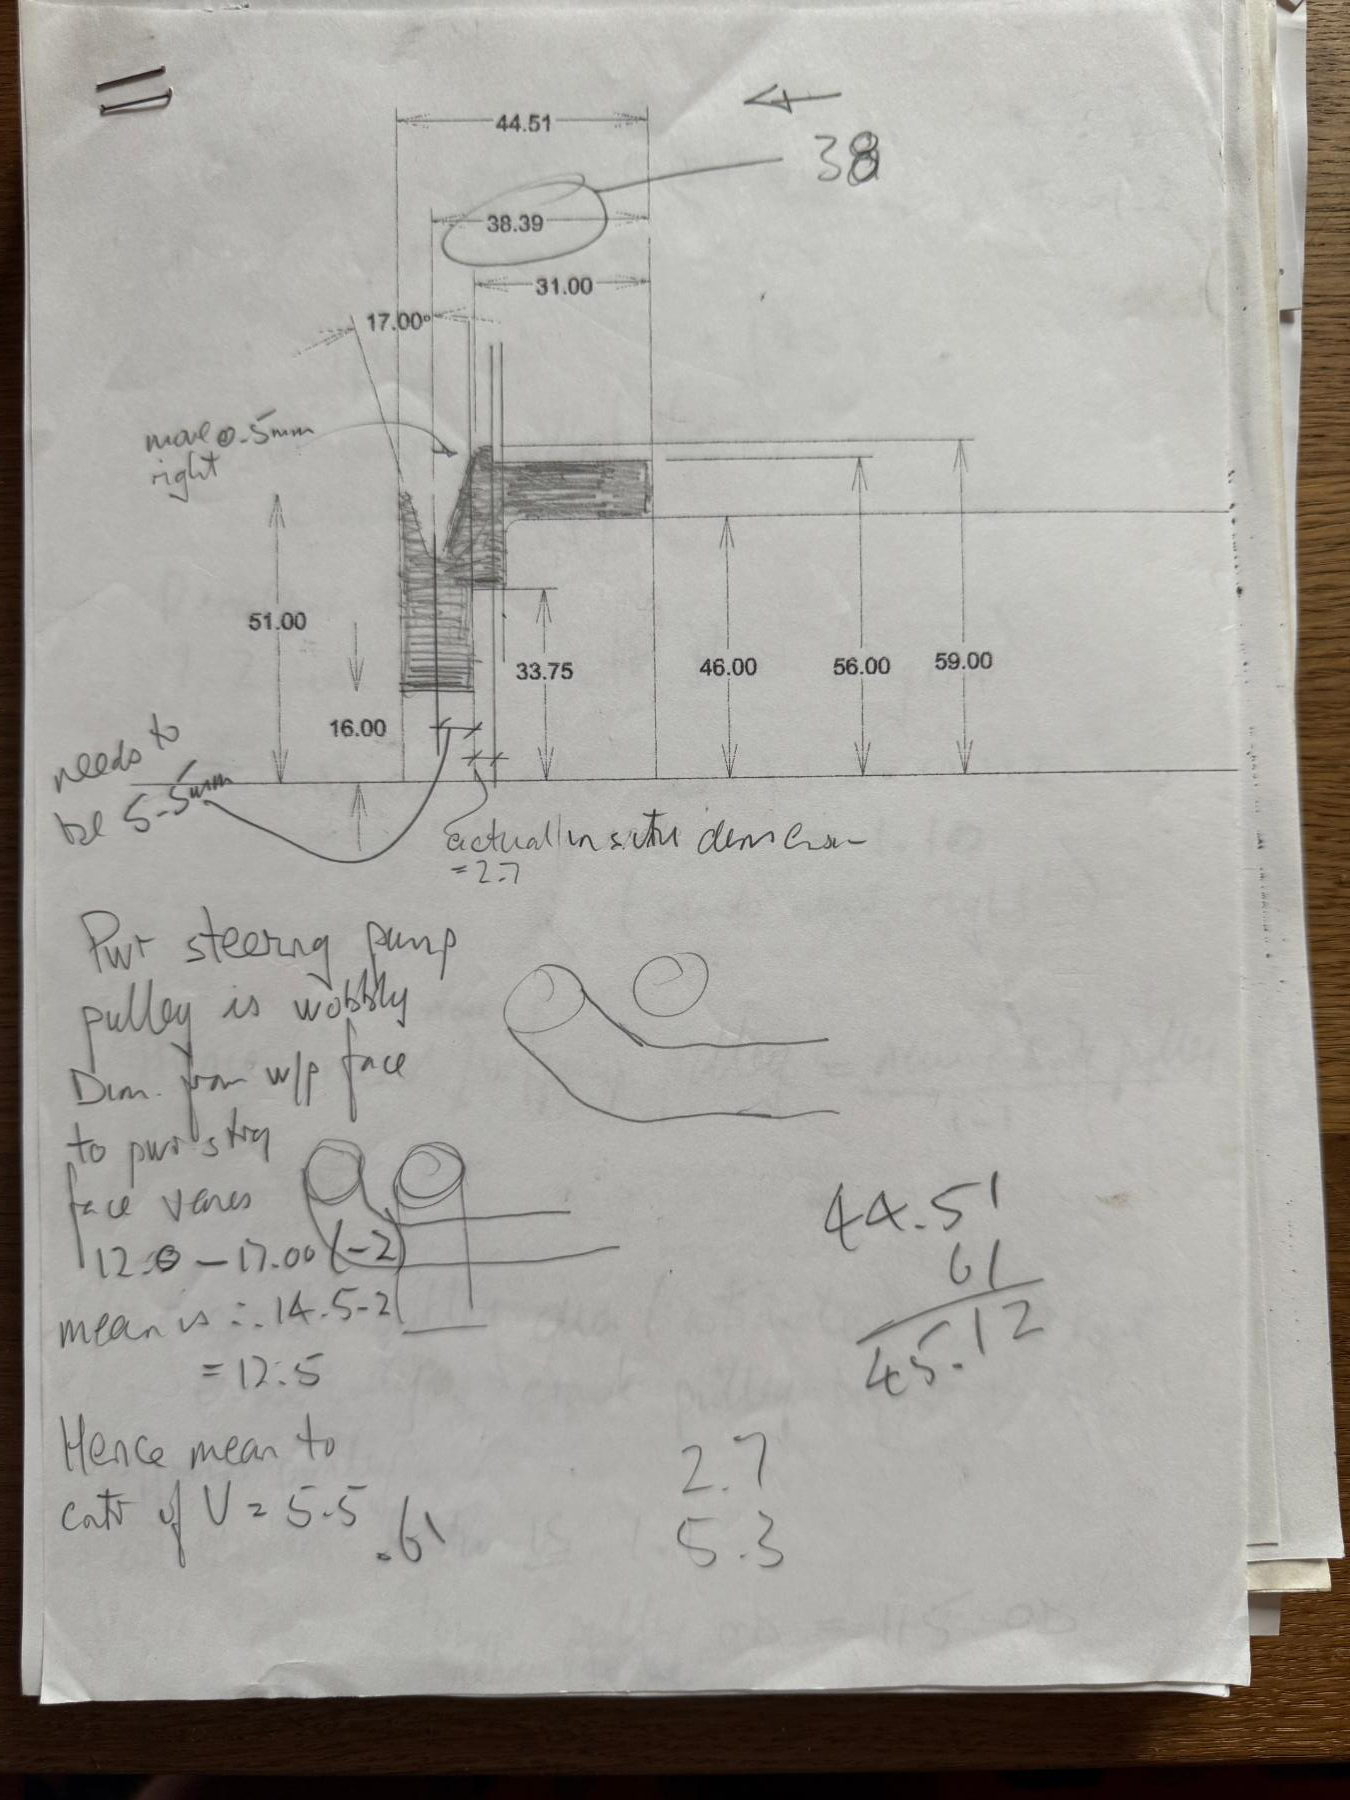 44.51
38
38.39
31.00
17.00°
move 0.5mm
right
51.00
33.75
46.00
56.00
59.00
16.00
needs to
be 5.5mm
actual in situ dimension
= 2.7
Pwr steering pump
pulley is wobbly
Dim. from w/p face
to pwr strg
face varies
12.0 - 17.00 (-2)
mean is ∴ 14.5-2
= 12.5
Hence mean to
cntr of V = 5.5
.61
44.51
61
45.12
2.7
5.3